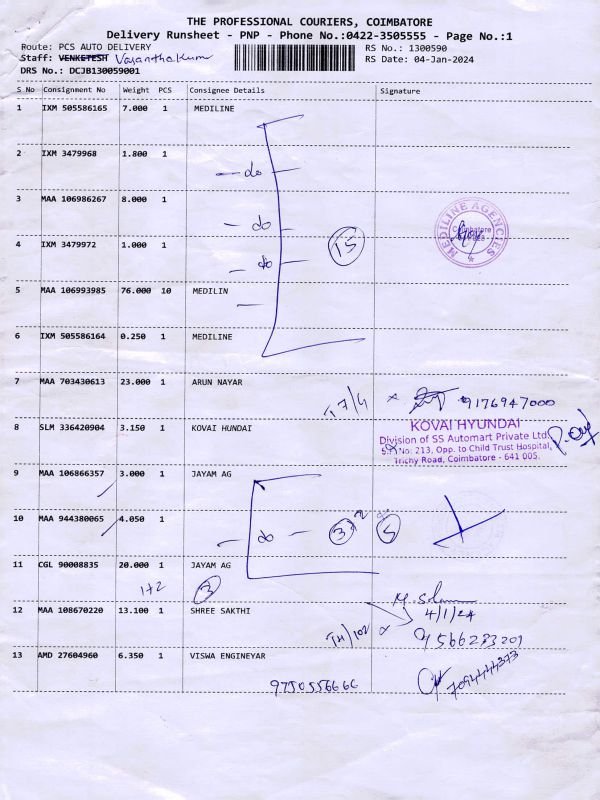 THE PROFESSIONAL COURIERS, COIMBATORE
Delivery Runsheet - PNP - Phone No.:0422-3505555 - Page No.:1
Route: PCS AUTO DELIVERY RS No.: 1300590
Staff: VENKETESH Vasanthakumar RS Date: 04-Jan-2024
DRS No.: DCJB130059001
S No Consignment No Weight PCS Consignee Details Signature
1 IXM 505586165 7.000 1 MEDILINE
2 IXM 3479968 1.800 1
— do —
3 MAA 106986267 8.000 1
— do
MEDILINE AGENCIES
Coimbatore
4 IXM 3479972 1.000 1
15
— do
5 MAA 106993985 76.000 10 MEDILIN
6 IXM 505586164 0.250 1 MEDILINE
7 MAA 703430613 23.000 1 ARUN NAYAR
9176947000
8 SLM 336420904 3.150 1 KOVAI HUNDAI
KOVAI HYUNDAI
Division of SS Automart Private Ltd
S.F.No: 213, Opp. to Child Trust Hospital,
Trichy Road, Coimbatore - 641 005.
9 MAA 106866357 3.000 1 JAYAM AG
10 MAA 944380065 4.050 1
— do — 3 5
11 CGL 90008835 20.000 1 JAYAM AG
1+2 3
12 MAA 108670220 13.100 1 SHREE SAKTHI
4/1/24
9566233201
13 AMD 27604960 6.350 1 VISWA ENGINEYAR
7094444373
9750556666